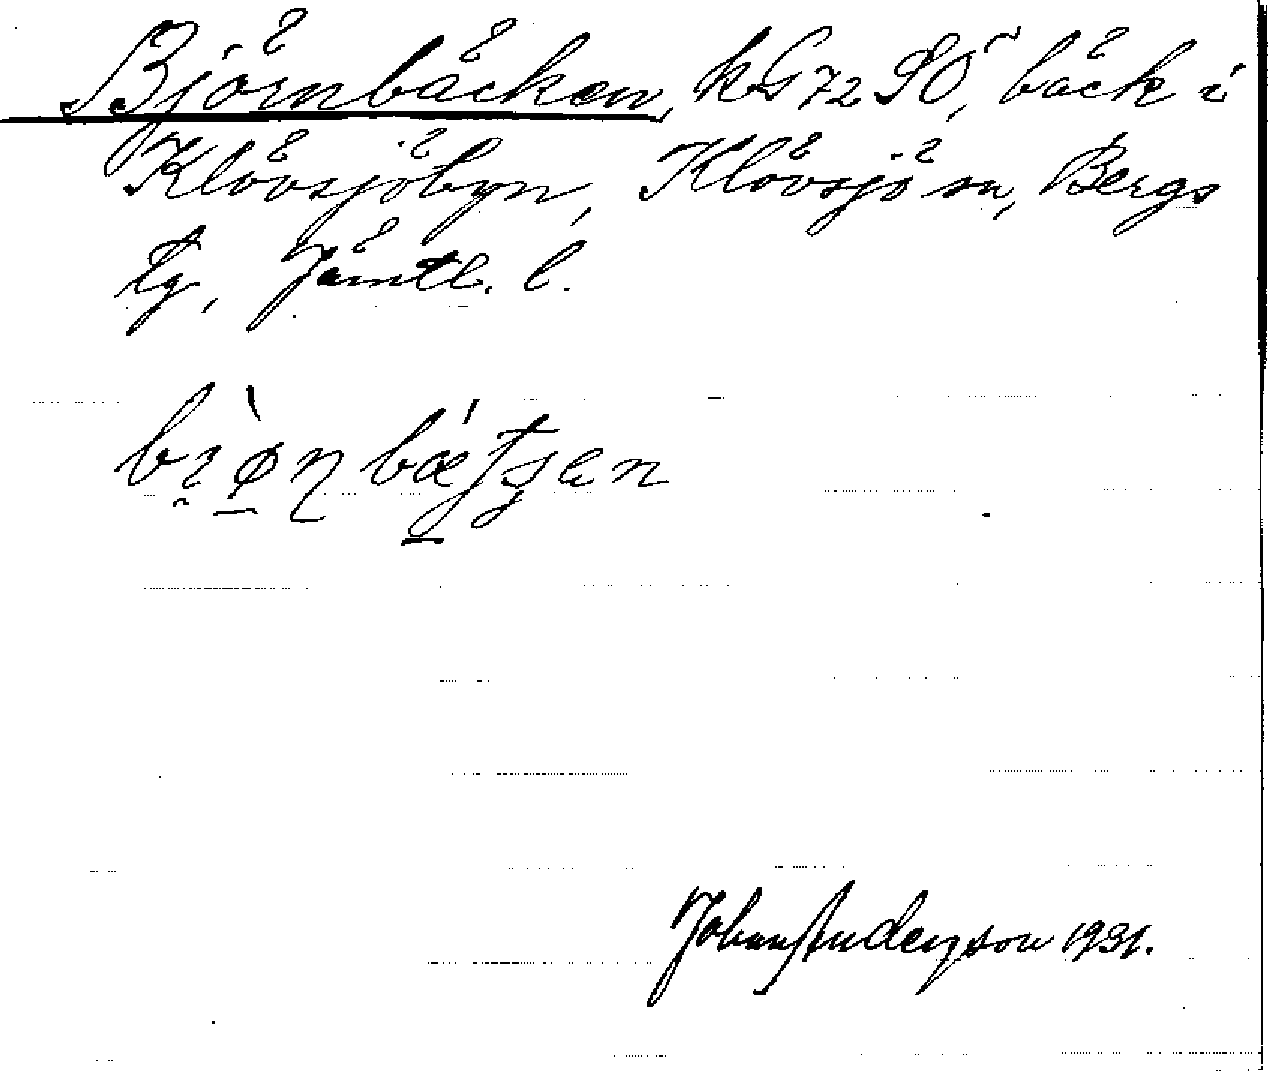 Björnbäcken, kG 72 SÖ, bäck i
Klövsjöbyn, Klövsjö sn, Bergs
tg, Jämtl. l.
Johan Anderson 1931.